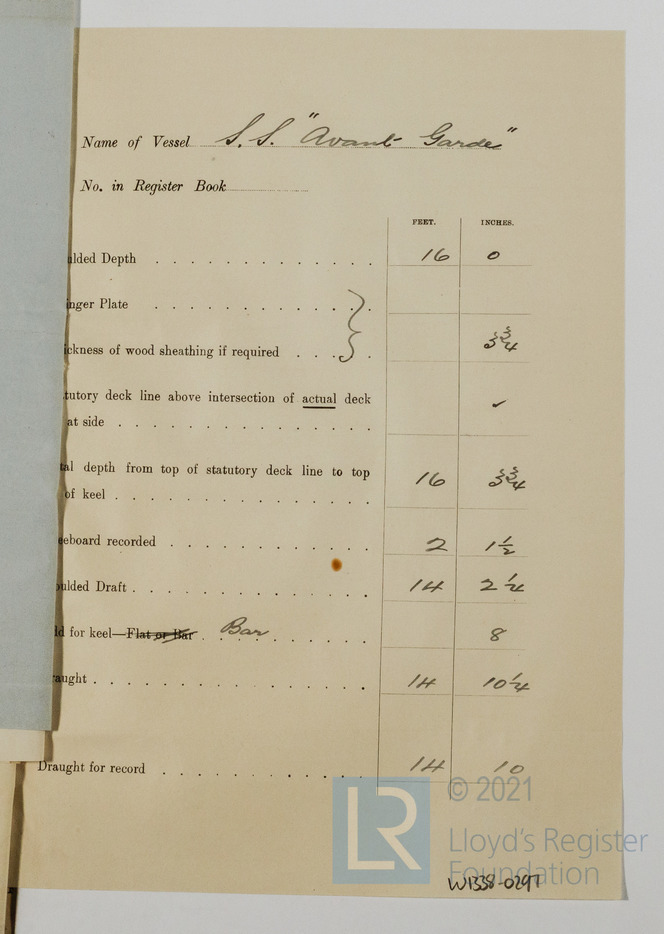 Name of Vessel S.S. "Avant Garde"
No. in Register Book
FEET. INCHES.
ulded Depth 16 0
inger Plate
ickness of wood sheathing if required 3 3/4
tutory deck line above intersection of actual deck
at side ✓
tal depth from top of statutory deck line to top
of keel 16 3 3/4
eeboard recorded 2 1 1/2
oulded Draft 14 2 1/4
dd for keel—Flat or Bar Bar 8
raught 14 10 1/4
Draught for record 14 10
© 2021
LR Lloyd's Register
Foundation
W1338-0297